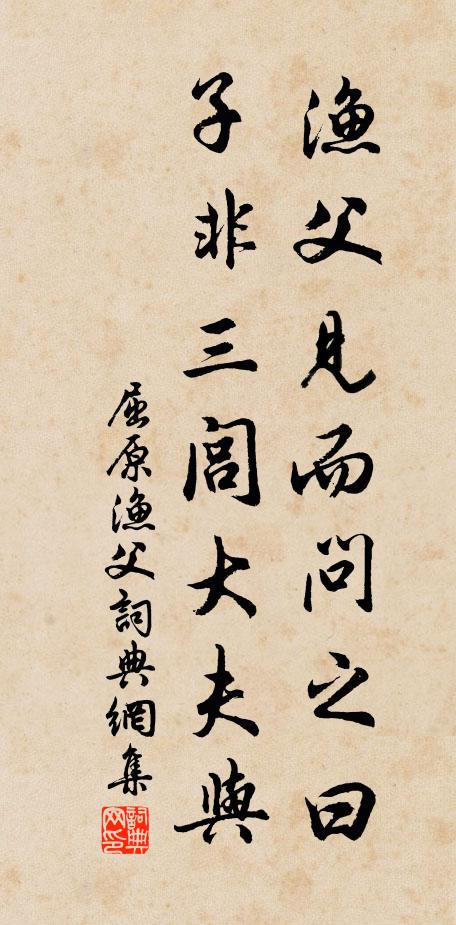 漁父見而問之曰
子非三閭大夫與
屈原漁父詞典網集
詞典網印